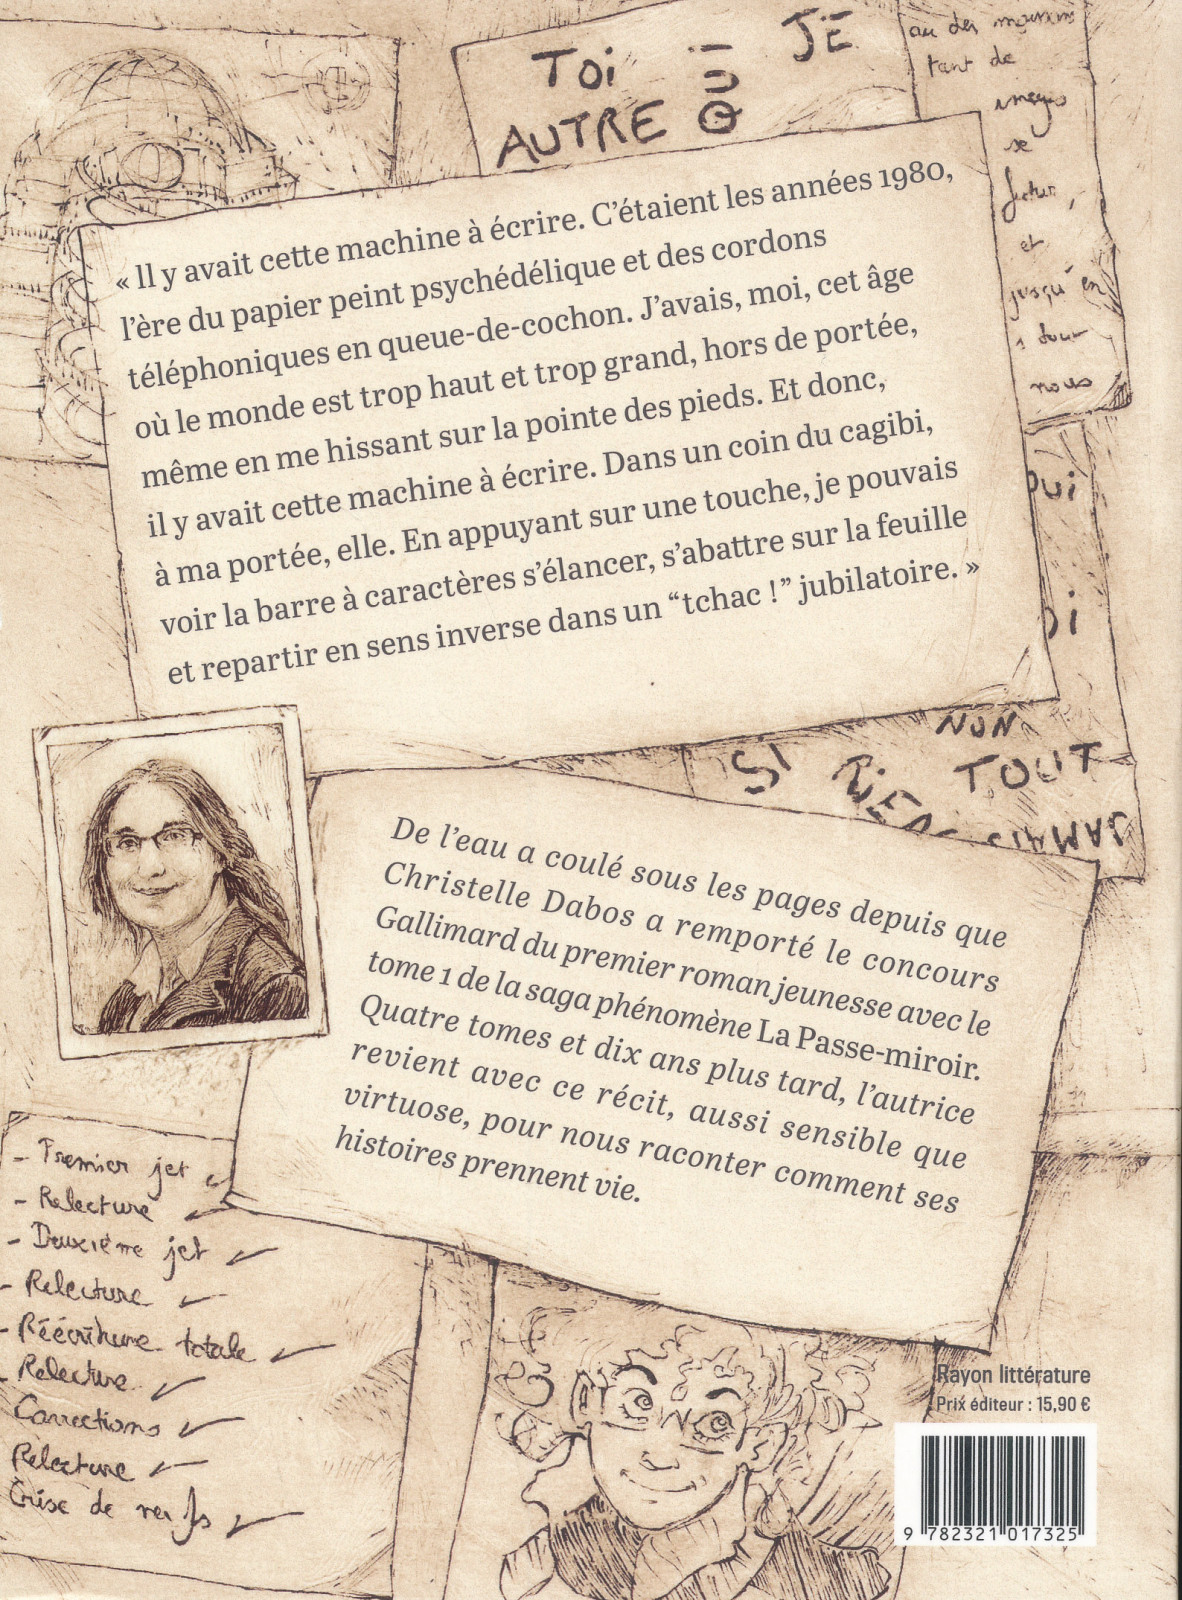 TOi
AUTRE
OUi
JE
au des
tant de
images
se
et
jusqu'en
nous
« Il y avait cette machine à écrire. C’étaient les années 1980,
l’ère du papier peint psychédélique et des cordons
téléphoniques en queue-de-cochon. J’avais, moi, cet âge
où le monde est trop haut et trop grand, hors de portée,
même en me hissant sur la pointe des pieds. Et donc,
il y avait cette machine à écrire. Dans un coin du cagibi,
à ma portée, elle. En appuyant sur une touche, je pouvais
voir la barre à caractères s’élancer, s’abattre sur la feuille
et repartir en sens inverse dans un “tchac !” jubilatoire. »
NON
SI
RIEN
TOUT
JAMAIS
De l’eau a coulé sous les pages depuis que
Christelle Dabos a remporté le concours
Gallimard du premier roman jeunesse avec le
tome 1 de la saga phénomène La Passe-miroir.
Quatre tomes et dix ans plus tard, l’autrice
revient avec ce récit, aussi sensible que
virtuose, pour nous raconter comment ses
histoires prennent vie.
- Premier jet
- Relecture
- Deuxième jet
- Relecture
- Réécriture totale
- Relecture
Corrections
Relecture
Crise de nerfs
Rayon littérature
Prix éditeur : 15,90 €
9 782321 017325